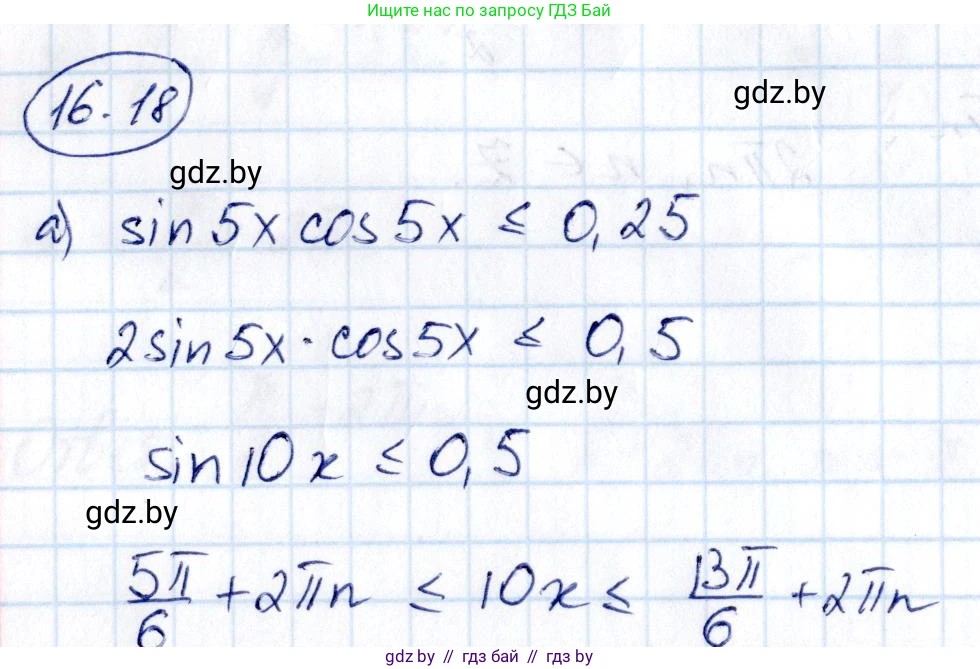 Ищите нас по запросу ГДЗ Бай
16.18
gdz.by
gdz.by
а) sin 5x cos 5x ≤ 0,25
2sin 5x · cos 5x ≤ 0,5
gdz.by
sin 10x ≤ 0,5
gdz.by
5π/6 + 2πn ≤ 10x ≤ 13π/6 + 2πn
gdz.by // гдз бай // гдз by